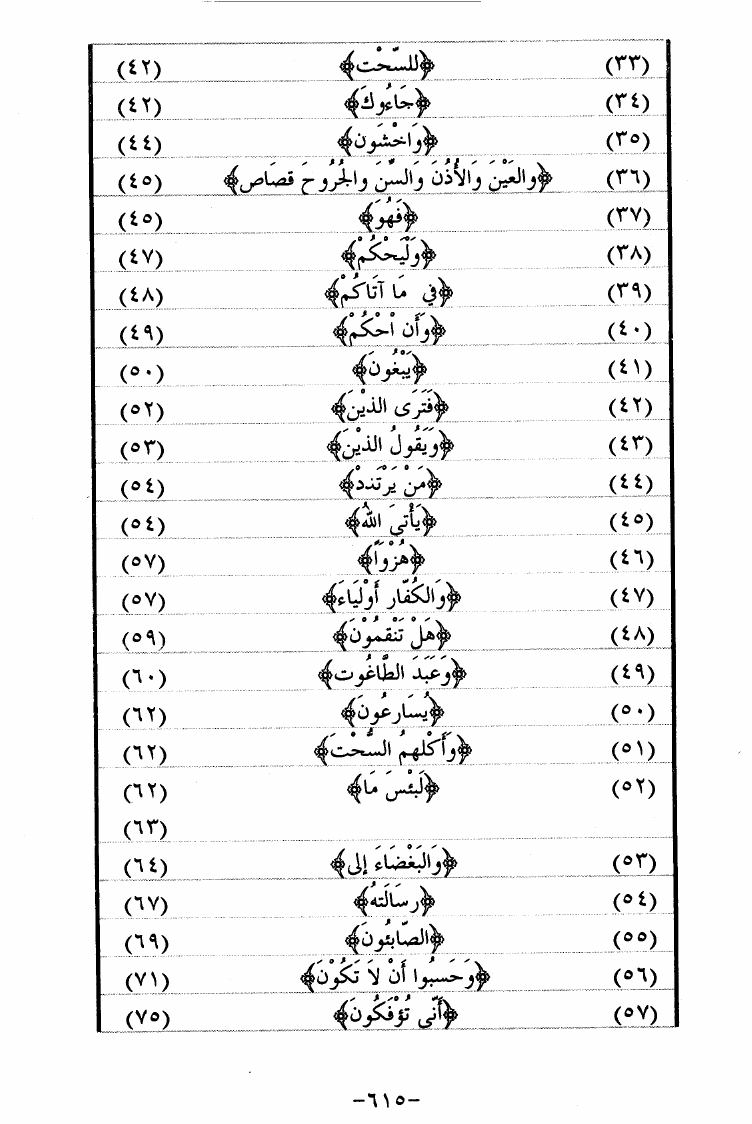 (٣٣) ﴿للسّحْت﴾ (٤٢)
(٣٤) ﴿جَاءُوكَ﴾ (٤٢)
(٣٥) ﴿وَاخْشَون﴾ (٤٤)
(٣٦) ﴿والعَيْنَ وَالأُذُنَ وَالسِّنَ والجُرُوحَ قصَاص﴾ (٤٥)
(٣٧) ﴿فَهُوَ﴾ (٤٥)
(٣٨) ﴿وَلْيَحْكُمْ﴾ (٤٧)
(٣٩) ﴿في مَا آتَاكُمْ﴾ (٤٨)
(٤٠) ﴿وَأَن احْكُمْ﴾ (٤٩)
(٤١) ﴿يَبْغُونَ﴾ (٥٠)
(٤٢) ﴿فَتَرَى الذيْنَ﴾ (٥٢)
(٤٣) ﴿وَيَقُولُ الذيْنَ﴾ (٥٣)
(٤٤) ﴿مَنْ يَرْتَددْ﴾ (٥٤)
(٤٥) ﴿يَأْتيَ اللهُ﴾ (٥٤)
(٤٦) ﴿هُزْوَاً﴾ (٥٧)
(٤٧) ﴿وَالكُفّار أَوْلَيَاءَ﴾ (٥٧)
(٤٨) ﴿هَلْ تَنْقمُوْنَ﴾ (٥٩)
(٤٩) ﴿وَعَبَدَ الطَّاغُوت﴾ (٦٠)
(٥٠) ﴿يُسَارعُونَ﴾ (٦٢)
(٥١) ﴿وَأَكْلهمُ السُّحْتَ﴾ (٦٢)
(٥٢) ﴿لَبئْسَ مَا﴾ (٦٢)
(٦٣)
(٥٣) ﴿وَالبَغْضَاءَ إلى﴾ (٦٤)
(٥٤) ﴿رسَالَتهُ﴾ (٦٧)
(٥٥) ﴿الصّابئُونَ﴾ (٦٩)
(٥٦) ﴿وَحَسبُوا أَنْ لاَ تَكُوْنَ﴾ (٧١)
(٥٧) ﴿أَنّى تُؤْفَكُونَ﴾ (٧٥)
-٦١٥-